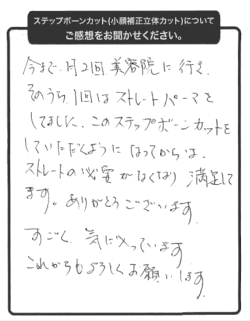 ステップボーンカット(小顔補正立体カット)について
ご感想をお聞かせください。
今まで、月2回美容院に行き、
そのうち1回はストレートパーマを
してました。このステップボーンカットを
していただくように なってからは、
ストレートの必要がなくなり 満足して
ます。ありがとうございます。
すごく、気に入っています
これからもよろしくお願いします。